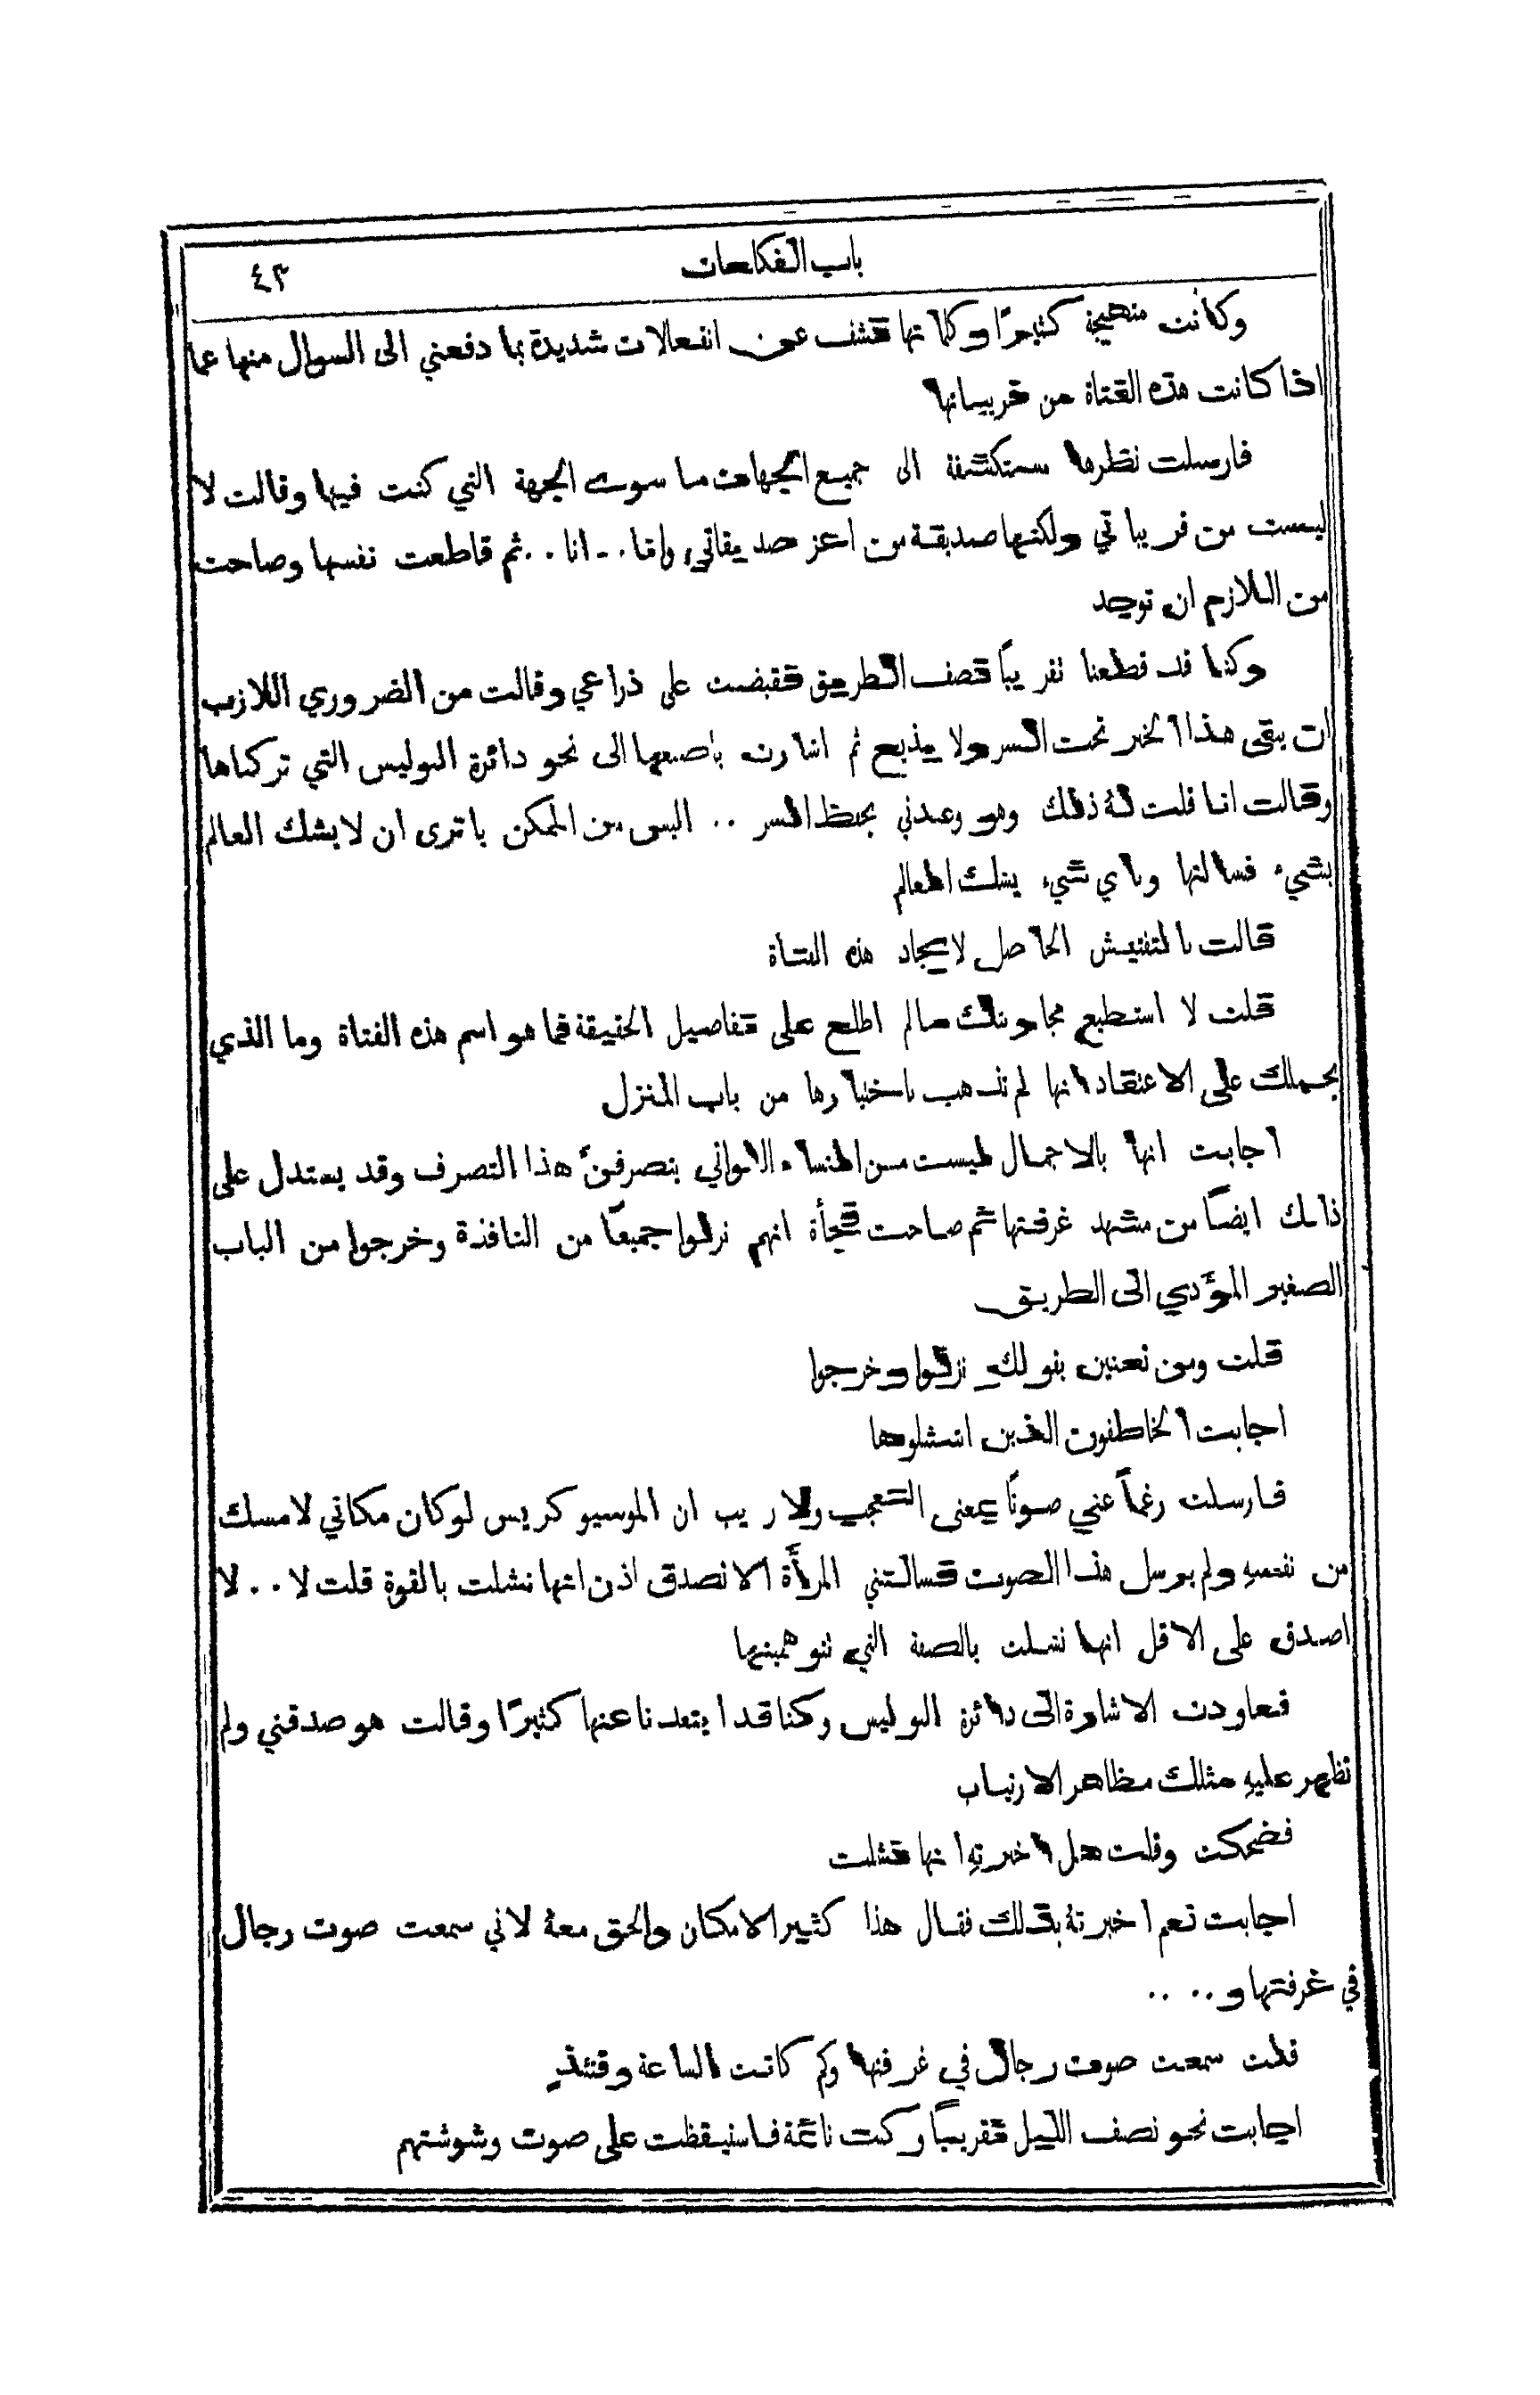 باب الفكاهات
٤٣
وكانت متهيجة كثيرًا وكلماتها تشف عن انفعالات شديدة مما دفعني الى السوال منها عما
اذا كانت هذه الفتاة من قريباتها
فارسلت نظرها مستكشفة الى جميع الجهات ما سوى الجهة التي كنت فيها وقالت لا
ليست من قريباتي ولكنها صديقة من اعز صديقاتي وانا . . انا . . ثم قاطعت نفسها وصاحت
من اللازم ان توجد
وكنا قد قطعنا تقريبًا نصف الطريق فقبضت على ذراعي وقالت من الضروري اللازب
ان يبقى هذا الخبر تحت السر ولا يذيع ثم اشارت باصبعها الى نحو دائرة البوليس التي تركناها
وقالت انا قلت لهُ ذلك وهو وعدني بحفظ السر . . اليس من الممكن يا ترى ان لا يشك العالم
بشيء فسالتها وباي شيء يشك العالم
قالت بالتفتيش الحاصل لايجاد هذه الفتاة
قلت لا استطيع مجاوبتك مالم اطلع على تفاصيل الحقيقة فما هو اسم هذه الفتاة وما الذي
يحملك على الاعتقاد انها لم تذهب باختيارها من باب المنزل
اجابت انها بالاجمال ليست من النساء اللواتي يتصرفنَ هذا التصرف وقد يستدل على
ذلك ايضًا من مشهد غرفتها ثم صاحت فجأة انهم نزلوا جميعًا من النافذة وخرجوا من الباب
الصغير المؤدي الى الطريق
قلت ومن تعنين بقولك نزلوا وخرجوا
اجابت الخاطفون الذين انتشلوها
فارسلت رغمًا عني صوتًا بمعنى التعجب ولا ريب ان الموسيو كريس لو كان مكاني لامسك
من نفسهِ ولم يرسل هذا الصوت فسالتني المرأة الا تصدق اذن انها نشلت بالقوة قلت لا . . لا
اصدق على الاقل انها نشلت بالصفة التي تتوهمينها
فعاودت الاشارة الى دائرة البوليس وكنا قد ابتعدنا عنها كثيرًا وقالت هو صدقني ولم
تظهر عليهِ مثلك مظاهر الارتياب
فضحكت وقلت هل اخبرتهِ انها نشلت
اجابت نعم اخبرتهُ بذلك فقال هذا كثير الامكان والحق معهُ لاني سمعت صوت رجال
في غرفتها و . . . .
قلت سمعت صوت رجال في غرفتها وكم كانت الساعة وقتئذٍ
اجابت نحو نصف الليل تقريبًا وكنت نائمة فاستيقظت على صوت وشوشتهم